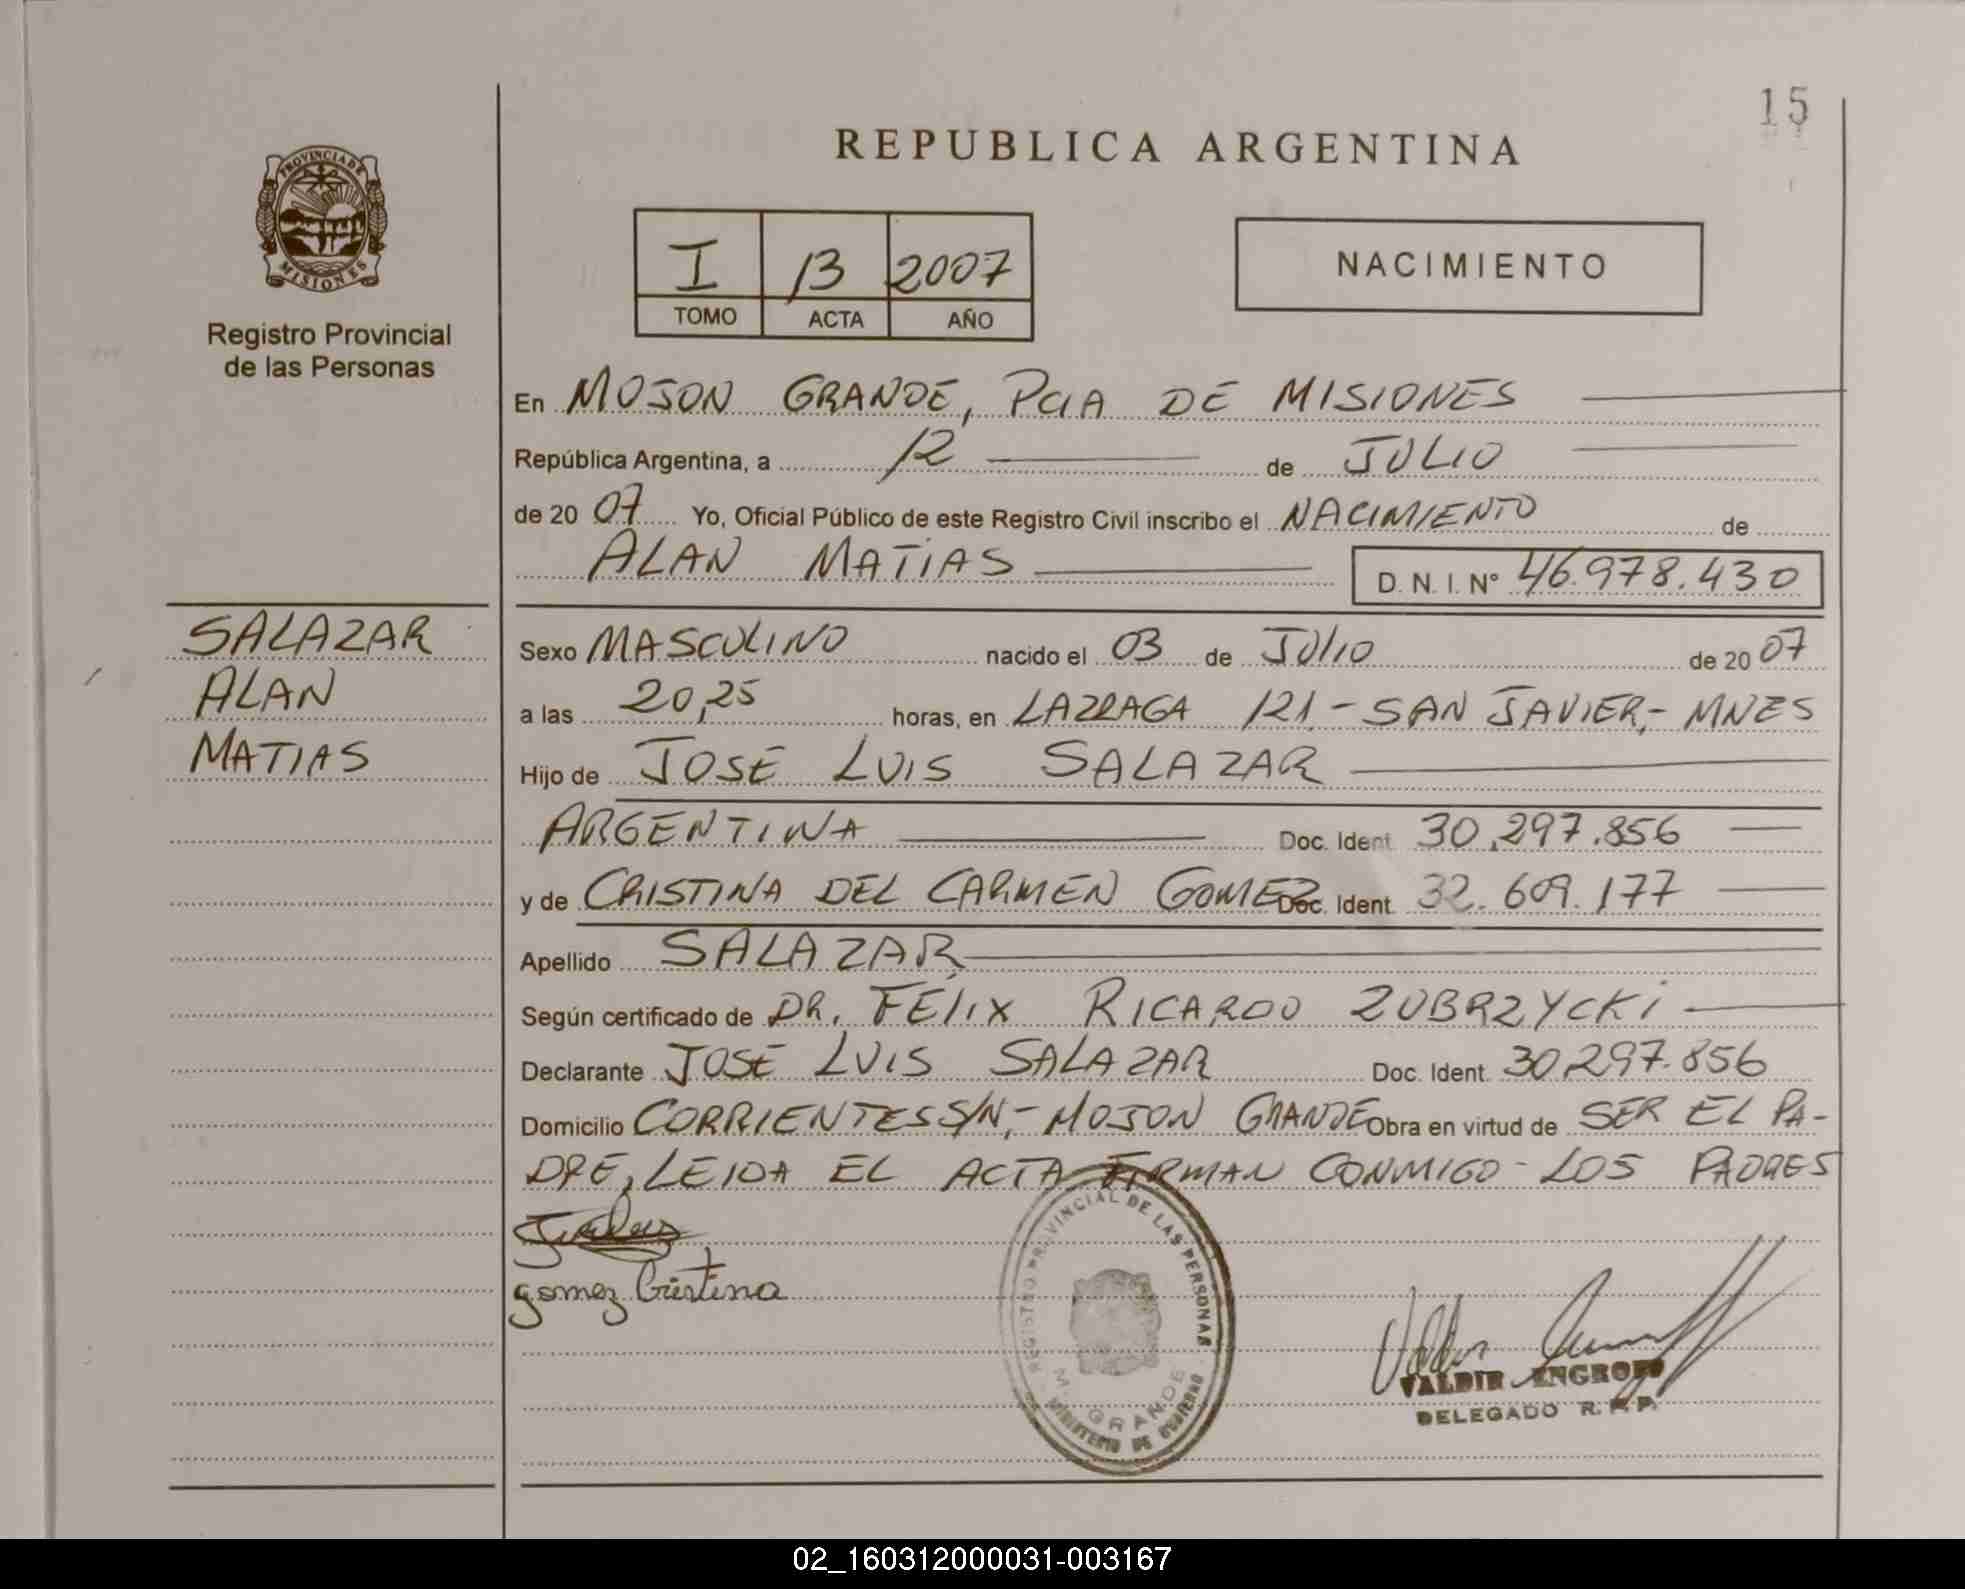 15
REPUBLICA ARGENTINA
PROVINCIA DE
MISIONES
Registro Provincial
de las Personas
I 13 2007
TOMO ACTA AÑO
NACIMIENTO
En MOJON GRANDE, PCIA DE MISIONES
República Argentina, a 12 de JULIO
de 20 07 Yo, Oficial Público de este Registro Civil inscribo el NACIMIENTO de
ALAN MATIAS D. N. I. N° 46.978.430
SALAZAR
ALAN
MATIAS
Sexo MASCULINO nacido el 03 de JULIO de 20 07
a las 20,25 horas, en LAZRAGA 121 - SAN JAVIER,- MNES
Hijo de JOSE LUIS SALAZAR
ARGENTINA Doc. Ident. 30.297.856
y de CRISTINA DEL CARMEN GOMEZ Doc. Ident. 32.609.177
Apellido SALAZAR
Según certificado de DR. FELIX RICARDO ZUBRZYCKI
Declarante JOSE LUIS SALAZAR Doc. Ident. 30.297.856
Domicilio CORRIENTES S/N,- MOJON GRANDE Obra en virtud de SER EL PA-
DRE, LEIDA EL ACTA FIRMAN CONMIGO - LOS PADRES
gomez Cristina
REGISTRO PROVINCIAL DE LAS PERSONAS
M. GRANDE
MINISTERIO DE GOBIERNO
VALDIR ENGROFF
DELEGADO R. P. P.
02_160312000031-003167